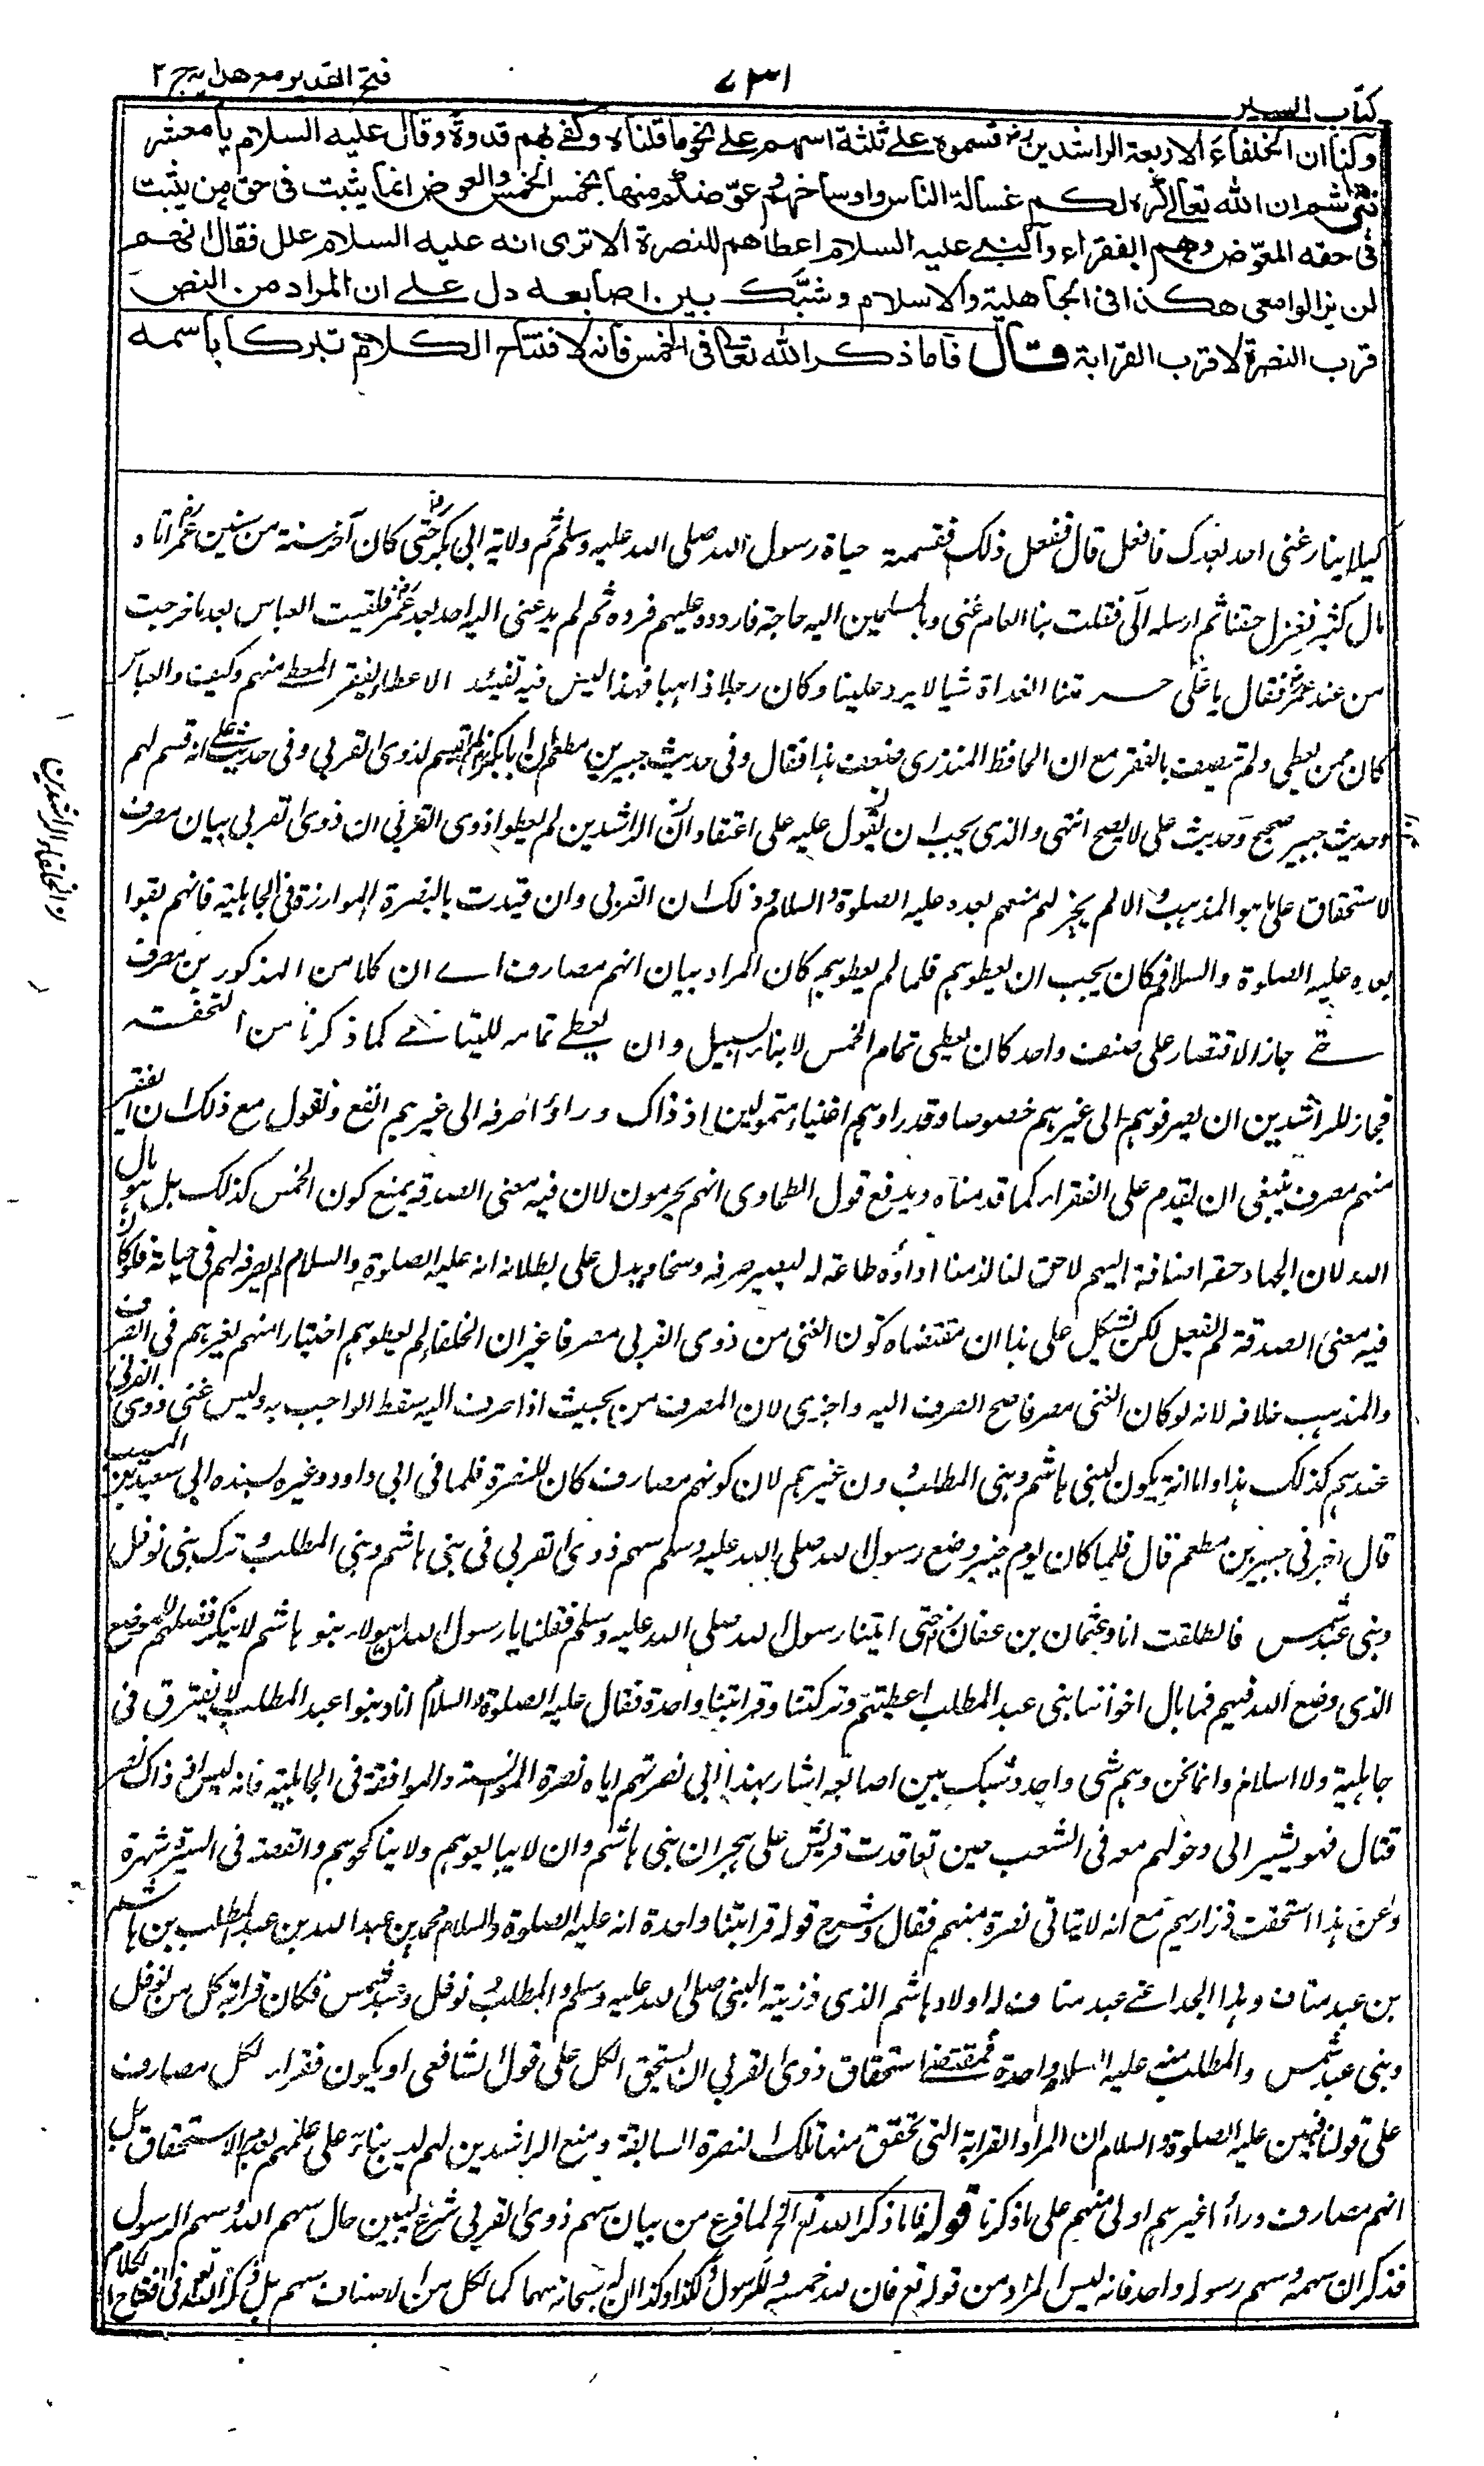 كتاب السير
٧٣١
فتح القدير مع هدايه ج ٢
ولنا ان الخلفاء الاربعة الراشدين رض قسموه على ثلثة اسهم على نحو ما قلناه وكفى بهم قدوة وقال عليه السلام يا معشر
بنى هاشم ان الله تعالى كره لكم غسالة الناس واوساخهم وعوضكم منها بخمس الخمس والعوض انما يثبت فى حق من يثبت
فى حقه المعوض وهم الفقراء والنبي عليه السلام اعطاهم للنصرة الا ترى انه عليه السلام علل فقال انهم
لن يزالوا معى هكذا فى الجاهلية والاسلام وشبك بين اصابعه دل على ان المراد من النص
قرب النصرة لا قرب القرابة قال فاما ذكر الله تعالى فى الخمس فانه لافتتاح الكلام تبركا باسمه
كيلا ينازعنى احد بعدك فافعل قال ففعل ذلك فقسمته حياة رسول الله صلى الله عليه وسلم ثم ولاية ابى بكر رض حتى كان آخر سنة من سنين عمر رض اتاه
مال كثير فعزل حقنا ثم ارسله الى فقلت بنا العام غنى وبالمسلمين اليه حاجة فاردده عليهم فرده ثم لم يدعنى اليه احد بعد عمر رض فلقيت العباس بعد ما خرجت
من عند عمر رض فقال يا على حرمتنا الغداة شيا لا يرد علينا وكان رجلا ذاهيا فهذا ليس فيه تقييد الاعطاء بفقر المعطى منهم وكيف والعباس
كان ممن يعطى ولم يتصف بالفقر مع ان الحافظ المنذرى ضعف هذا فقال وفى حديث جبير بن مطعم ان ابا بكر رض لم يقسم لذوى القربى وفى حديث على انه قسم لهم
وحديث جبير صحيح وحديث على لا يصح انتهى والذى يجب ان يقول عليه على اعتقاد ان الراشدين لم يعطوا ذوى القربى ان ذوى القربى بيان مصرف
لا استحقاق على ما هو المذهب والا لم يجز لهم منعهم بعده عليه الصلوة والسلام وذلك ان القربى وان قيدت بالنصرة الموازرة فى الجاهلية فانهم بقوا
بعده عليه الصلوة والسلام فكان يجب ان يعطوهم فلما لم يعطوهم كان المراد بيان انهم مصارف اى ان كلا من المذكورين مصرف
حتى جاز الاقتصار على صنف واحد كان يعطى تمام الخمس لابناء السبيل وان يعطى تمامه لليتامى كما ذكرنا من التحفة
فجاز للراشدين ان يصرفوه الى غيرهم خصوصا وقد راوهم اغنياء متمولين اذ ذاك وراوا صرفه الى غيرهم انفع ونقول مع ذلك ان الفقير
منهم مصرف ينبغى ان يقدم على الفقراء كما قدمناه ويدفع قول الطحاوى انهم يحرمون لان فيه معنى الصدقة بمنع كون الخمس كذلك بل هو مال
الله لان الجهاد حقه اضافة اليهم لا حق لنا لزمنا اداؤه طاعة له ليصير صرفه وسخا ويدل على بطلانه انه عليه الصلوة والسلام لم يصرفه لهم فى حياته فلو كان
فيه معنى الصدقة لم يفعل لكن يشكل على هذا ان مقتضاه كون الغنى من ذوى القربى مصرفا غير ان الخلفاء لم يعطوهم اختيارا منهم لغيرهم فى الصرف
والمذهب خلافه لانه لو كان الغنى مصرفا صح الصرف اليه واجزى لان المصرف من بحيث اذا صرف اليه سقط الواجب به وليس غنى ذوى القربى
عندهم كذلك هذا واما انه يكون لبنى هاشم وبنى المطلب دون غيرهم لان كونهم مصارف كان للنصرة فلما فى ابى داود وغيره بسنده الى سعيد بن المسيب
قال اخبرنى جبير بن مطعم قال فلما كان يوم خيبر وضع رسول الله صلى الله عليه وسلم سهم ذوى القربى فى بنى هاشم وبنى المطلب وترك بنى نوفل
وبنى عبد شمس فانطلقت انا وعثمان بن عفان رض حتى اتينا رسول الله صلى الله عليه وسلم فقلنا يا رسول الله هؤلاء بنو هاشم لا ننكر فضلهم للموضع
الذى وضع الله فيهم فما بال اخواننا بنى عبد المطلب اعطيتهم وتركتنا وقرابتنا واحدة فقال عليه الصلوة والسلام انا وبنوا عبد المطلب لا نفترق فى
جاهلية ولا اسلام وانما نحن وهم شى واحد وشبك بين اصابعه اشار بهذا الى نصرتهم اياه نصرة المؤانسة والموافقة فى الجاهلية فانه ليس اذ ذاك نصر
قتال فهو يشير الى دخولهم معه فى الشعب حين تعاقدت قريش على هجران بنى هاشم وان لا يبايعوهم ولا يناكحوهم والقصة فى السير شهرة
وعن هذا استحقت ذراريهم مع انه لا يتاتى نصرة منهم فقال وشرح قوله قرابتنا واحدة انه عليه الصلوة والسلام محمد بن عبد الله بن عبد المطلب بن هاشم
بن عبد مناف وهذا الجد اعنى عبد مناف له اولاد هاشم الذى ذريته النبى صلى الله عليه وسلم والمطلب ونوفل وعبد شمس فكان قرابة كل من نوفل
وبنى عبد شمس والمطلب منه عليه السلام واحدة فمقتضى استحقاق ذوى القربى ان يستحق الكل على قول الشافعى او يكون فقراء لكل مصارف
على قولنا فبين عليه الصلوة والسلام ان المراد القرابة التى تحقق منها تلك النصرة السابقة ومنع الراشدين لهم ليس بناء على علمهم بعدم الاستحقاق بل
انهم مصارف ورأوا غيرهم اولى منهم على ما ذكرنا قوله فاما ذكر الله تع الخ لما فرغ من بيان سهم ذوى القربى شرع يبين حال سهم الله وسهم الرسول
فذكر ان سهمه وسهم رسوله واحد فانه ليس المراد من قوله تع فان لله خمسه وللرسول كذا وكذا ان له سبحانه سهما كما لكل من الاصناف سهم بل ذكر الله تعالى فى افتتاح الكلام
ن الخلفاء الراشدين